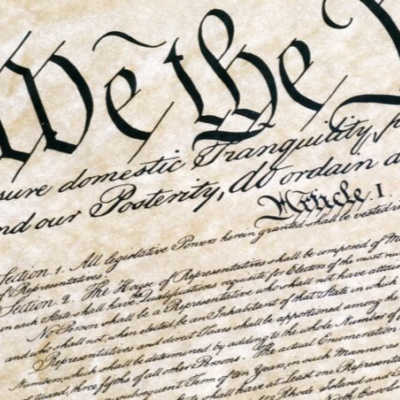 We the
sure domestic Tranquility,
nd our Posterity, do ordain a
Article. I.
Section 1. All legislative Powers herein granted shall be vested in
of Representatives.
Section 2. The House of Representatives shall be composed of M
in each State shall have the Qualifications requisite for Electors of the most nu
No Person shall be a Representative who shall not have attai
and who shall not, when elected, be an Inhabitant of that State in which
Representatives and direct Taxes shall be apportioned among the
Numbers, which shall be determined by adding to the whole Number of
not taxed, three fifths of all other Persons. The actual Enumeration
subsequent Term of ten Years, in such Manner a
shall have at Least one Representat
Rhode Island and
North Carol